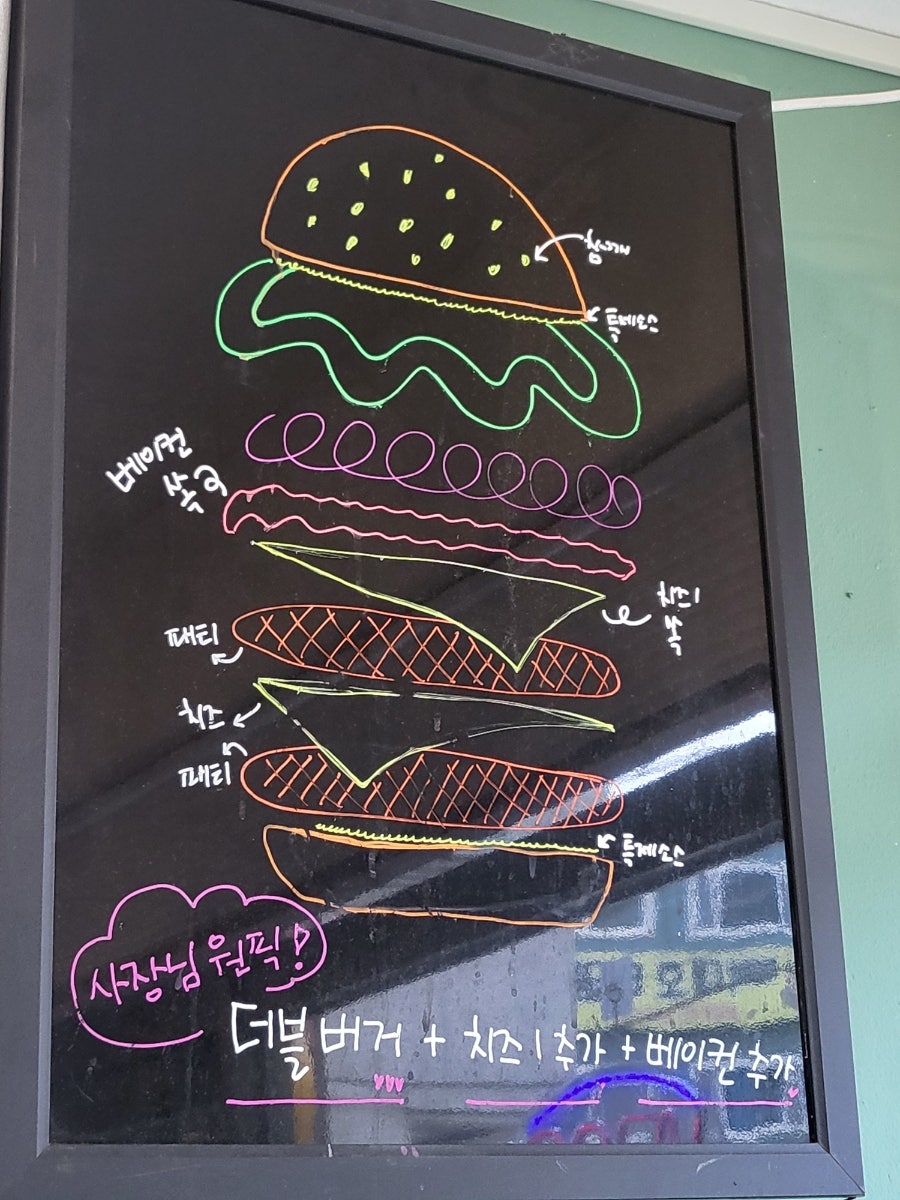 참깨
특제소스
베이컨
쏙
치즈1
쏙
패티
치즈
패티
특제소스
사장님 원픽!
더블버거 + 치즈1추가 + 베이컨추가